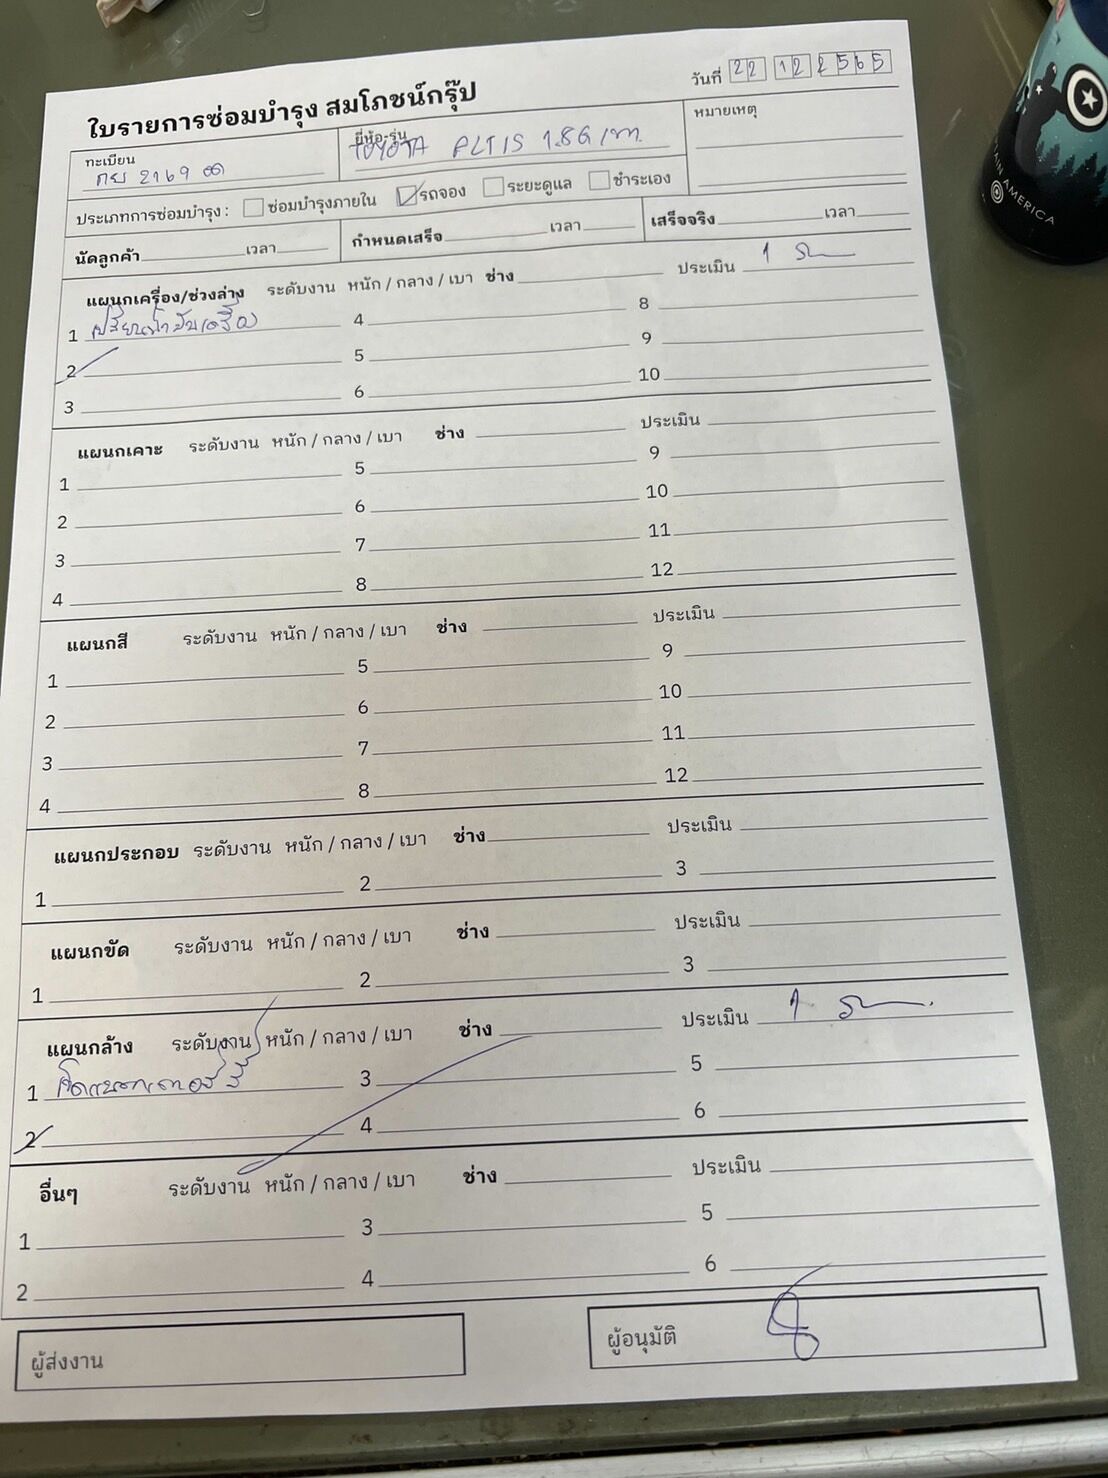 ใบรายการซ่อมบำรุง สมโภชน์กรุ๊ป
วันที่ 22 12 2565
ทะเบียน
กย 2169
ยี่ห้อ-รุ่น
TOYOTA ALTIS 1.8G/
หมายเหตุ
ประเภทการซ่อมบำรุง : ซ่อมบำรุงภายใน รถจอง ระยะดูแล ชำระเอง
นัดลูกค้า เวลา กำหนดเสร็จ เวลา เสร็จจริง เวลา
แผนกเครื่อง/ช่วงล่าง ระดับงาน หนัก / กลาง / เบา ช่าง ประเมิน 1 วัน
1 เปลี่ยนน้ำมันเครื่อง 4 8
2 5 9
3 6 10
แผนกเคาะ ระดับงาน หนัก / กลาง / เบา ช่าง ประเมิน
1 5 9
2 6 10
3 7 11
4 8 12
แผนกสี ระดับงาน หนัก / กลาง / เบา ช่าง ประเมิน
1 5 9
2 6 10
3 7 11
4 8 12
แผนกประกอบ ระดับงาน หนัก / กลาง / เบา ช่าง ประเมิน
1 2 3
แผนกขัด ระดับงาน หนัก / กลาง / เบา ช่าง ประเมิน
1 2 3
แผนกล้าง ระดับงาน หนัก / กลาง / เบา ช่าง ประเมิน 1 วัน
1 3 5
2 4 6
อื่นๆ ระดับงาน หนัก / กลาง / เบา ช่าง ประเมิน
1 3 5
2 4 6
ผู้ส่งงาน
ผู้อนุมัติ
AMERICA